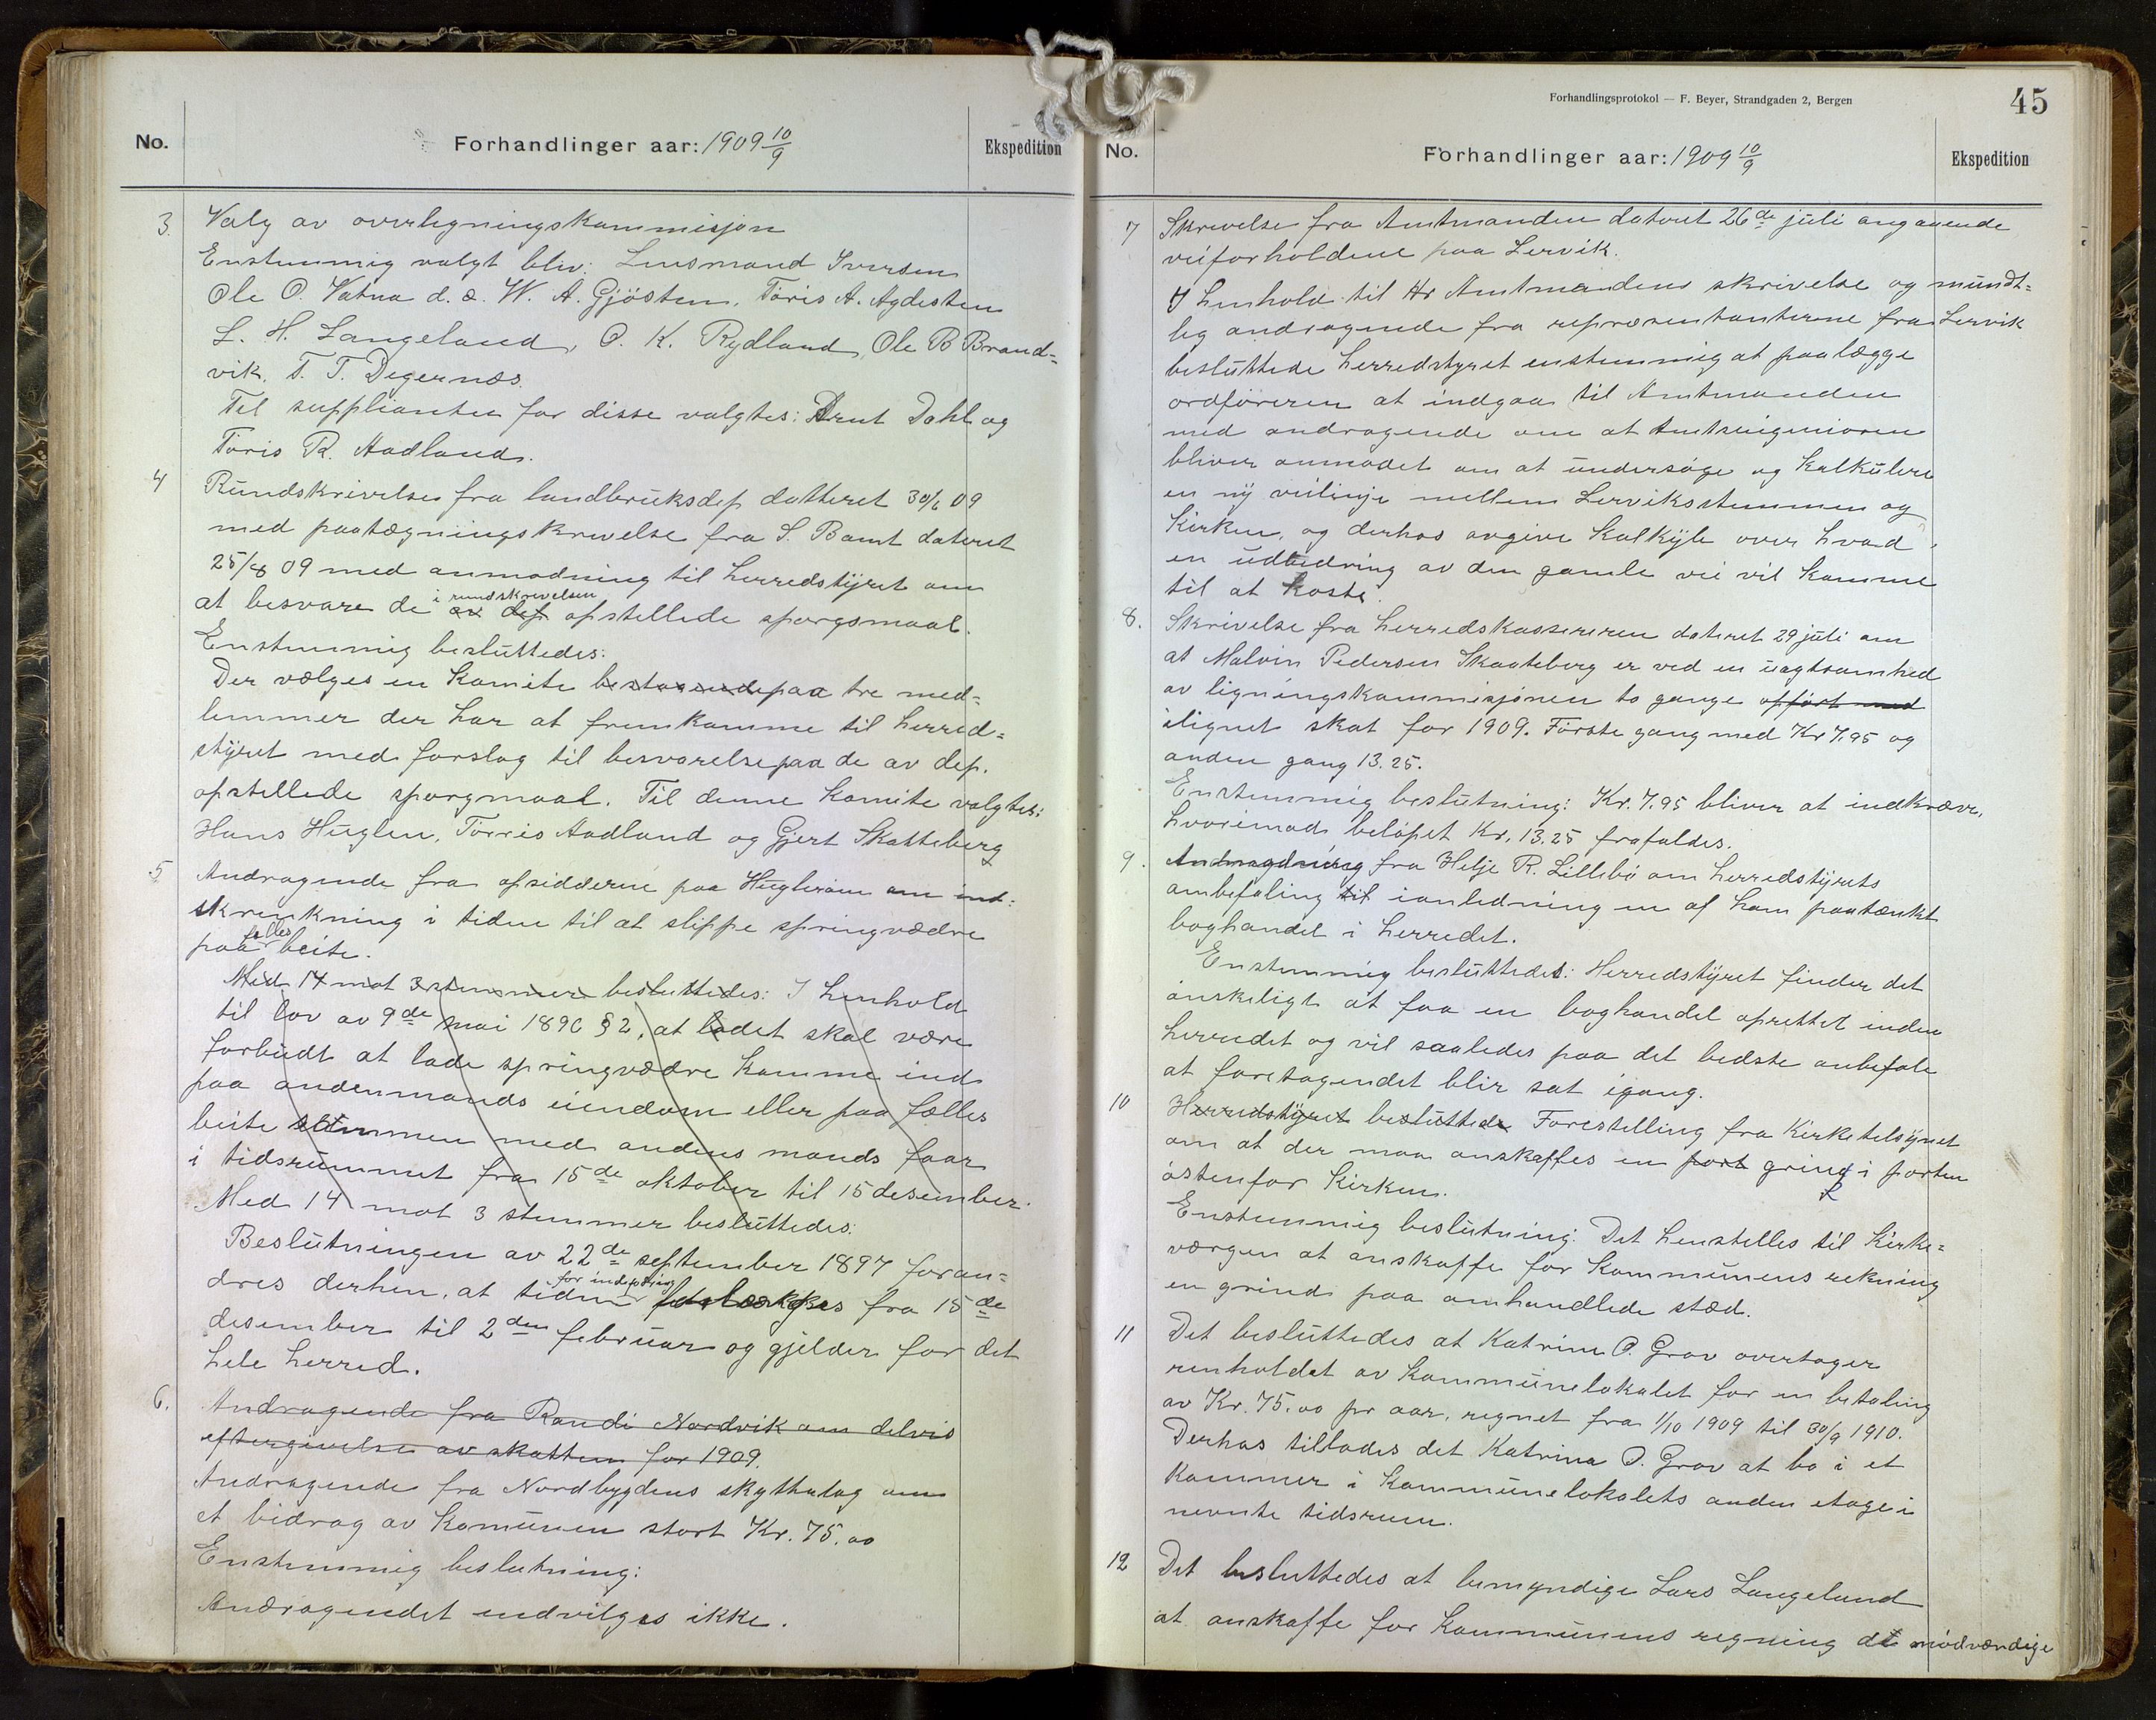 No.
Forhandlinger aar: 1909 10/9
Ekspedition
3. Valg av overligningskommisjon
Enstemmig valgt blev: Lensmand Iversen
Ole O. Vatna d. æ. W. A. Gjösten, Töris A. Agdesten
L. H. Langeland, O. K. Rydland, Ole B Brand-
vik, T. T. Degernæs.
Til supplianter for disse valgtes: Arnt Dahl og
Töris R. Aadland.
4 Rundskrivelse fra landbruksdep datteret 30/6 09
med paategningsskrivelse fra S. Bamt dateret
25/8 09 med anmodning til herredstyret om
i rundskrivelsen
at besvare de av dep opstellede sporgsmaal.
Enstemmig besluttedes:
Der vælges en komite bestaaende paa tre med-
lemmer der har at fremkomme til herred-
styret med forslag til besvarelse paa de av dep.
opstellede sporgmaal. Til denne komite valgtes:
Hans Huglen, Törris Aadland og Gjert Skatteberg
5 Andragende fra opsidderne paa Hugleröen om ind-
skrenkning i tiden til at slippe springvædre
fælles
paa beite.
Med 14 mot 3 stemmer besluttedes: I henhold
til lov av 9de mai 1890 § 2, at ladet skal være
forbudt at lade springvædre komme ind
paa andenmands eiendom eller paa fælles
beite sammen med andens mands faar
i tidsrummet fra 15de oktober til 15 desember.
Med 14 mot 3 stemmer besluttedes:
Beslutningen av 22de september 1897 foran-
for indspæring
dres derhen, at tiden forlækges fra 15de
desember til 2den februar og gjelder for det
hele herred.
6. Andragende fra Randi Nordvik om delvis
eftergivelse av skatten for 1909.
Andragende fra Nordbygdens skytherlag om
et bidrag av komunen stort Kr. 75.00
Enstemmig beslutning:
Andragendet indvilges ikke.
Forhandlingsprotokol — F. Beyer, Strandgaden 2, Bergen
45
No.
Forhandlinger aar: 1909 10/9
Ekspedition
7 Skrivelse fra Amtmanden datert 26de juli angaaende
veiforholdene paa Lervik.
I henhold til Hr Amtmandens skrivelse og mundt-
lig andragende fra repræsentanterne fra Lervik
besluttede herredstyret enstemmig at paalægge
ordföreren at indgaa til Amtmanden
med andragende om at Amtsingeniören
bliver anmodet om at undersöge og kalkulere
en ny veilinje mellem Lerviksstemmen og
Kirken, og derhos avgive Kalkyle over hvad
en udbedring av den gamle vei vil komme
til at koste.
8. Skrivelse fra herredskassereren dateret 29 juli om
at Malvin Pedersen Skaateberg er ved en uagtsamhed
av ligningskommisjonen to gange opfört med
ilignet skat for 1909. Förste gang med Kr 7,95 og
anden gang 13.25.
Enstemmig beslutning: Kr. 7.95 bliver at indkræve,
hvorimod belöpet Kr. 13.25 frafaldes.
9. Andragdning fra Helje R. Lillebö om herredstyrets
anbefaling til ianledning en af ham paatænkt
boghandel i herredet.
Enstemmig besluttedes: Herredstyret finder det
önskeligt at faa en boghandel oprettet inden
herredet og vil saaledes paa det bedste anbefale
at foretagendet blir sat igang.
10 Herredstyret besluttede Forestelling fra Kirketilsynet
om at der maa anskaffes en port grind i porten
östenfor Kirken.
Enstemmig beslutning: Det henstelles til Kirke-
værgen at anskaffe for Kommunens rekning
en grind paa omhandlede stæd.
11 Det besluttedes at Katrine O. Grov overtager
renholdet av Kommunelokalet for en betaling
av Kr. 75.00 pr aar, regnet fra 1/10 1909 til 30/9 1910.
Derhos tillades det Katrina O. Grov at bo i et
Kammer i Kommunelokalets anden etage i
nevnte tidsrum.
12 Det besluttedes at bemyndige Lars Langeland
at anskaffe for Kommunens regning de nödvændige